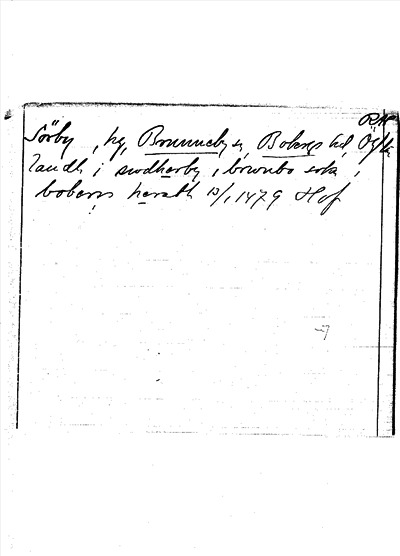 RH
Sörby, hg, Brunneby sn, Bobergs hd, Ög
landh i swdherby, i brwnbo sokn, i
bobergs herath 13/1 1479 Hof